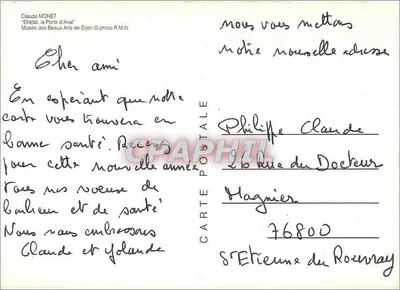 Claude MONET
"Etretat, la Porte d'Aval"
Musée des Beaux Arts de Dijon © photo R.M.N.
Cher ami
En espérant que notre
carte vous trouvera en
bonne santé. Recevez
pour cette nouvelle année
tous nos voeux de
bonheur et de santé
Nous vous embrassons
Claude et Yolande
CARTE POSTALE
nous vous mettons
notre nouvelle adresse
Philippe Claude
26 Rue du Docteur
Magnier
76800
St Etienne du Rouvray
CPAPHIL